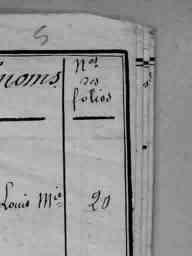 5
noms
Nos
des
folios
Louis Mie
20